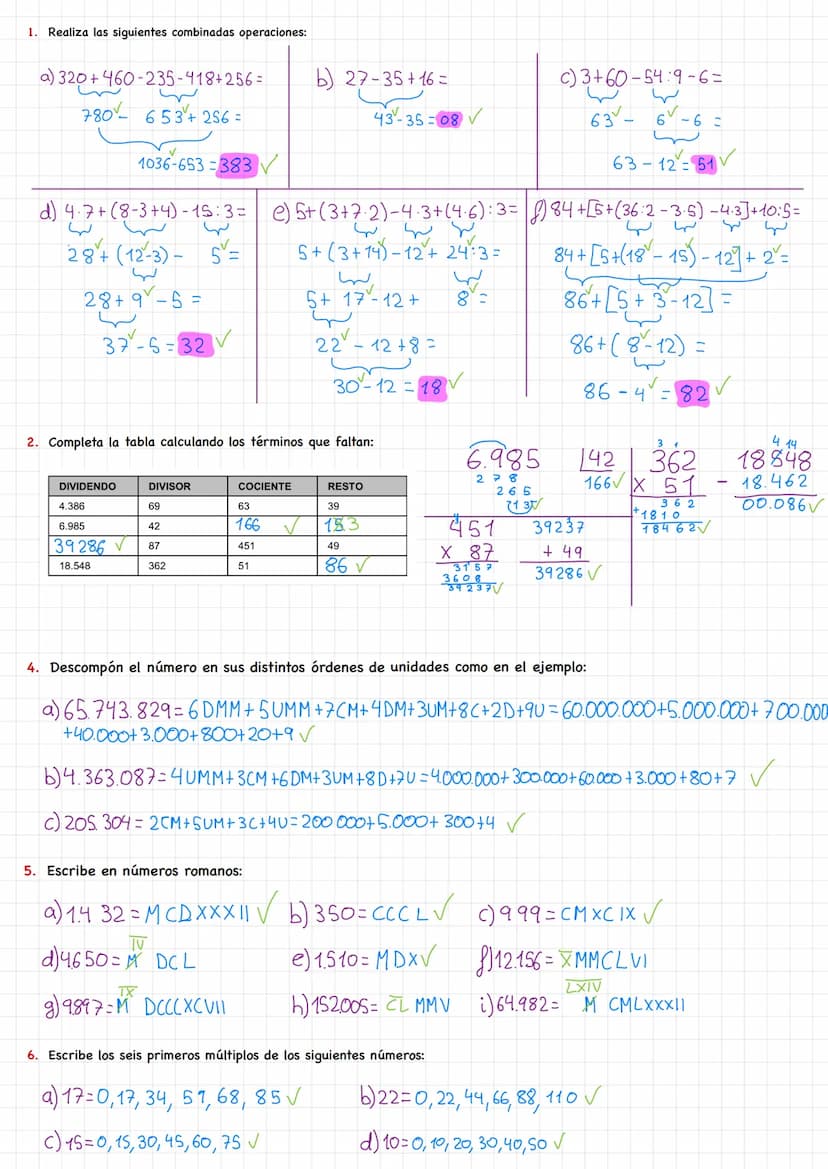 1. Realiza las siguientes combinadas operaciones:
a) 320+460-235-418+256=
780 - 653+256=
1036-653=383 ✓
b) 27-35+16=
43-35=08 ✓
c) 3+60-54:9-6=
63 - 6 -6 =
63-12=51 ✓
d) 4·7+(8-3+4)-15:3=
28+(12-3)- 5=
28+9-5=
37-5=32 ✓
e) 5+(3+7·2)-4·3+(4·6):3=
5+(3+14)-12+24:3=
5+ 17-12+ 8=
22-12+8=
30-12=18 ✓
f) 84+[5+(36:2-3·5)-4·3]+10:5=
84+[5+(18-15)-12]+2=
86+[5+3-12]=
86+(8-12)=
86-4=82 ✓
2. Completa la tabla calculando los términos que faltan:
DIVIDENDO DIVISOR COCIENTE RESTO
4.386 69 63 39
6.985 42 166 ✓ 13
39286 ✓ 87 451 49
18.548 362 51 86 ✓
6.985 42
278 166 ✓
265
13 ✓
451
X 87
3157
3608
39237 ✓
39237
+ 49
39286 ✓
3 1
362
X 51
362
+1810
18462 ✓
4 14
18548
- 18.462
00.086 ✓
4. Descompón el número en sus distintos órdenes de unidades como en el ejemplo:
a) 65.743.829=6DMM+5UMM+7CM+4DM+3UM+8C+2D+9U=60.000.000+5.000.000+700.000
+40.000+3.000+800+20+9 ✓
b) 4.363.087=4UMM+3CM+6DM+3UM+8D+7U=4.000.000+300.000+60.000+3.000+80+7 ✓
c) 205.304=2CM+5UM+3C+4U=200.000+5.000+300+4 ✓
5. Escribe en números romanos:
a) 1.432=MCDXXXII ✓ b) 350=CCCL ✓ c) 999=CMXCIX ✓
d) 4.650=I̅V̅ DCL e) 1.510=MDX ✓ f) 12.156=X̅MMCLVI
g) 9.897=I̅X̅ DCCCXCVII h) 152.005=C̅L̅ MMV i) 64.982=L̅X̅I̅V̅ CMLXXXII
6. Escribe los seis primeros múltiplos de los siguientes números:
a) 17=0,17,34, 51,68, 85 ✓ b) 22=0,22,44,66,88,110 ✓
c) 15=0,15,30,45,60,75 ✓ d) 10=0,10,20,30,40,50 ✓